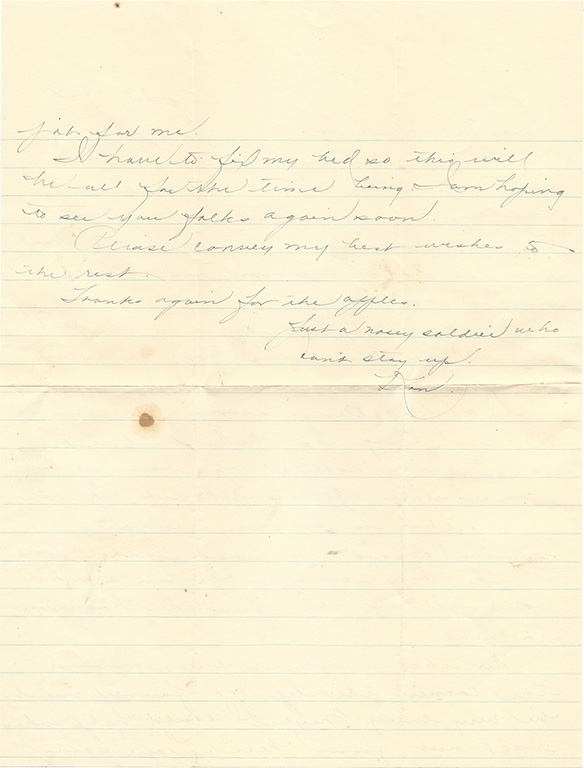 job for me.
I have to fix my bed so this will
be all for the time being. I am hoping
to see you folks again soon.
Please convey my best wishes to
the rest.
Thanks again for the apples.
Just a nosey soldier who
can't stay up.
Dan.